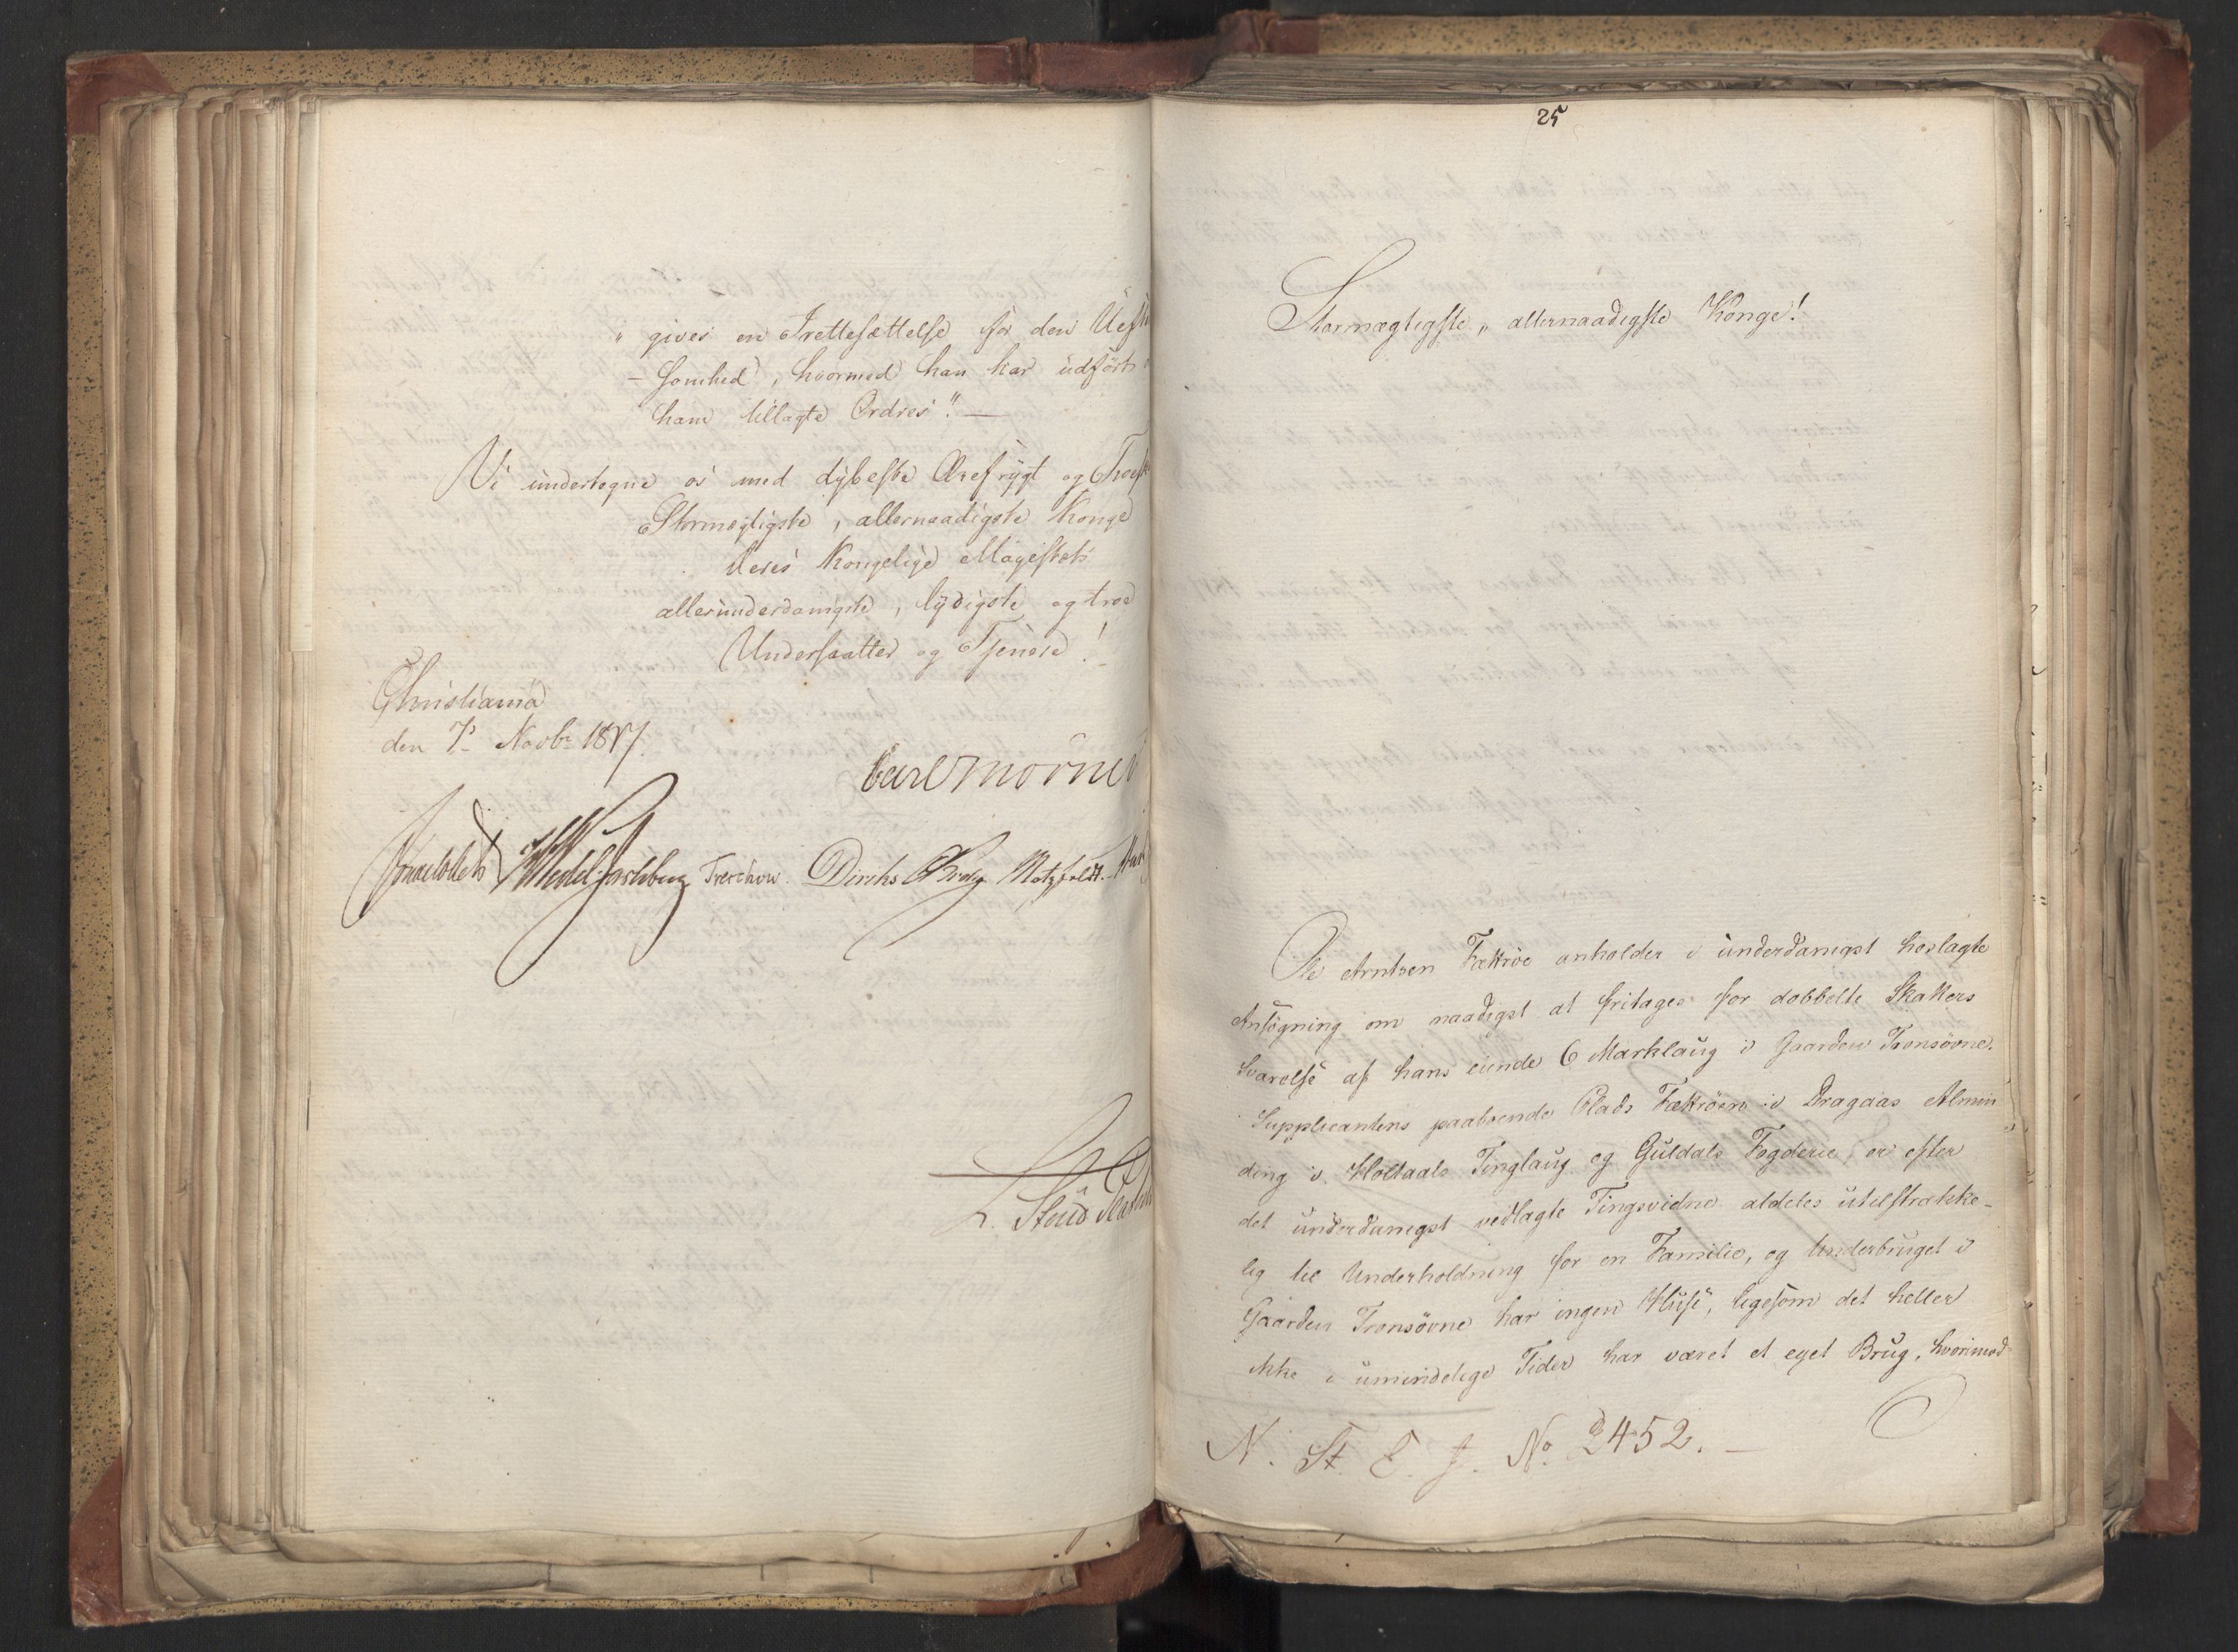 " gives en Irettesættelse for den
- somhed, hvormed han har udført
ham tillagte Ordres". —
Vi undertegne os med dybeste Ærefrygt og Troesk
Stormægtigste, allernaadigste Konge
Deres Kongelige Mayestæts
allerunderdanigste, lydigste og troe
Undersaatter og Tjenere!
Christiania
den 7de Novbr 1817.
Carl Mörner
Sommerhielm HWedel-Jarlsberg Treschow. Diriks Motzfeldt.
L. Stoud Platou
25
Stormægtigste, allernaadigste Konge!
Ole Arntsen Fættrøe anholder i underdanigst hoslagte
Ansøgning om naadigst at fritages for dobbelte Skatters
Svarelse af hans eiende 6 Marklaug i Gaarden Tronsövne.
Supplicantens paaboende Plads Fættröen i Dragaas Almin
ding i Holtaals Tinglaug og Guldals Fogderie, er efter
det underdanigst vedlagte Tingsvidne aldeles utilstrække-
lig til Underholdning for en Familie, og Underbruget i
Gaarden Tronsövne har ingen Huse, ligesom det heller
ikke i umindelige Tider har været et eget Brug, hvorimod
N. St. E. J. No 2452. —